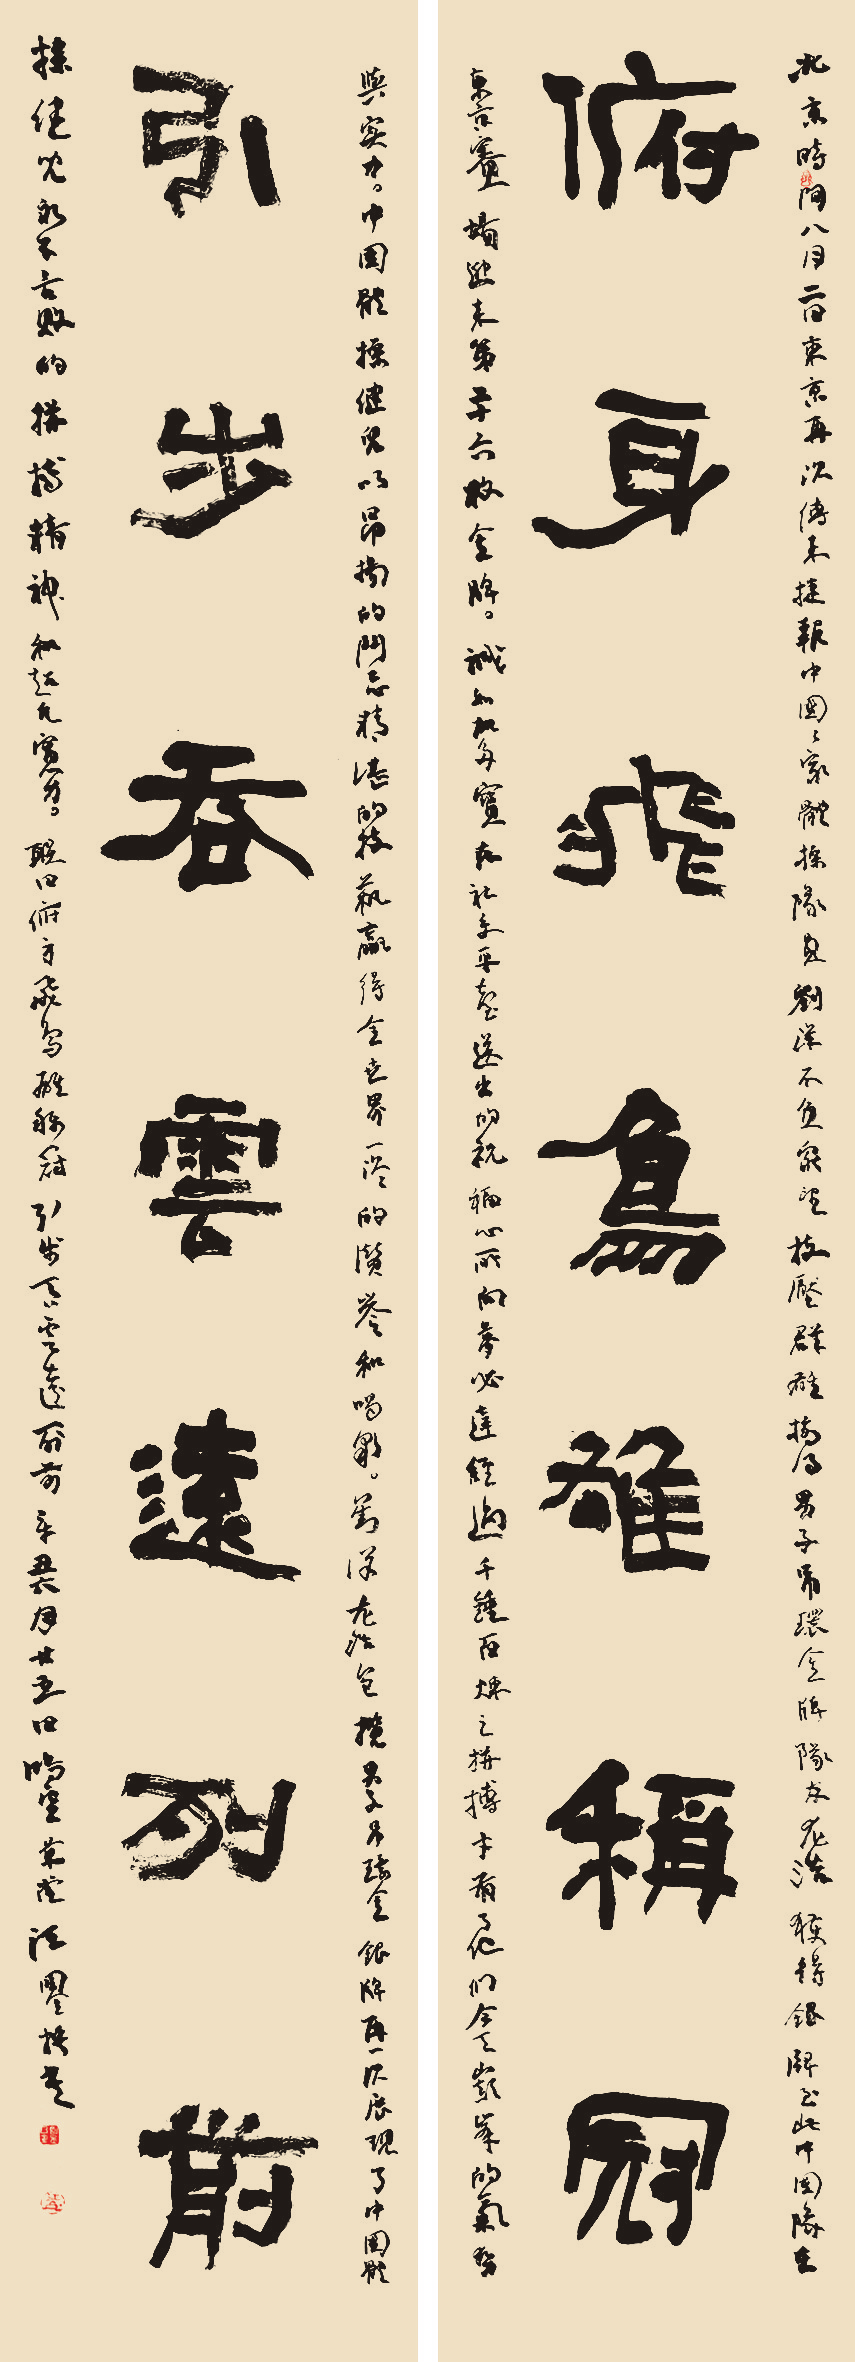 北京時間八月二日東京再次傳來捷報中國國家體操隊員劉洋不負眾望技壓群雄摘得男子吊環金牌隊友尤浩獲得銀牌至此中國隊在
俯身飛鳥雄稱冠
東京賽場迎來第二十六枚金牌。誠如啟多寶和社委再臺送出的祝福心所向夢必達經過千錘百煉之拼搏才有了他們今天巔峯的氣勢
與実力。中国體操健兒以昂揚的鬥志精湛的技藝贏得全世界一片的讚譽和喝彩。劉洋尤浩包攬男子吊環金銀牌再一次展現了中国體
引步吞雲遠列前
操健兒永不言敗的拼搏精神和超凡實力。聯曰俯身飛鳥雄稱冠引步吞雲遠列前辛丑六月廿五日晴